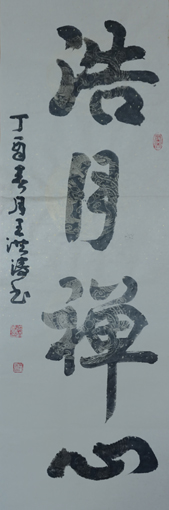 浩月禅心
丁酉春月王洪涛书